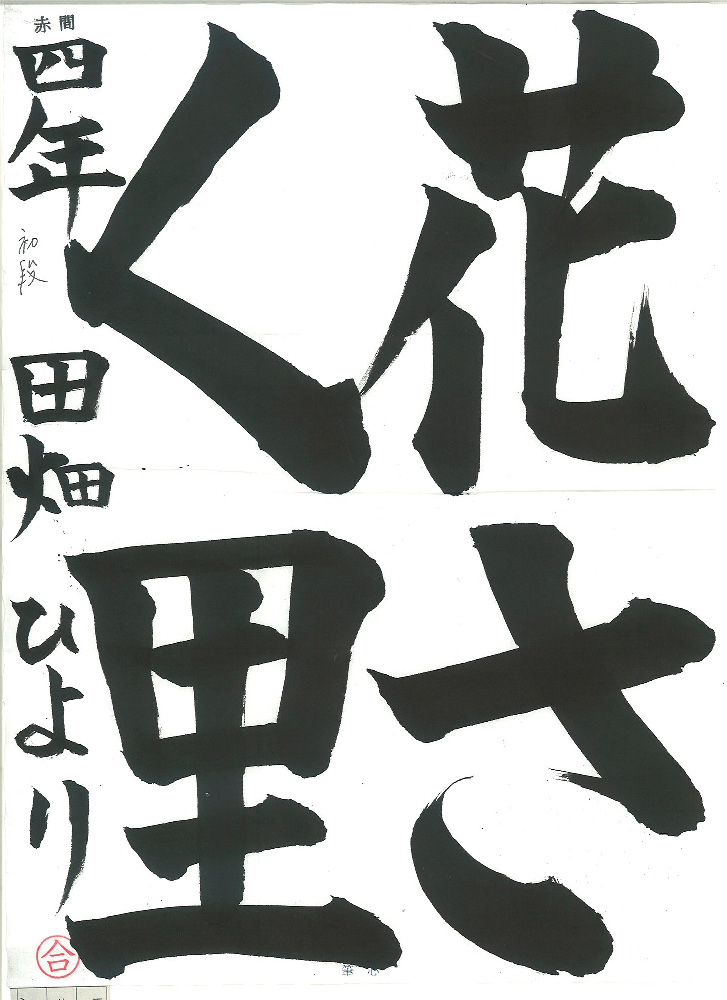 花さ
く里
赤間
四年 田畑ひより
初段
合
筆心